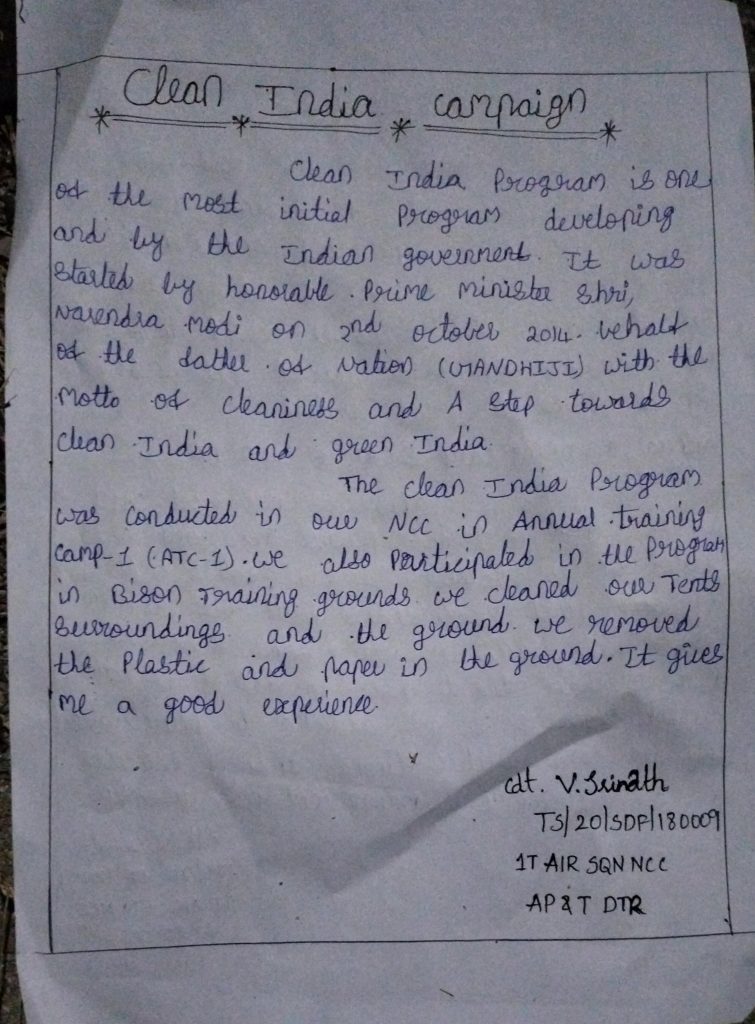 Clean India campaign
Clean India Program is one
of the most initial Program developing
and by the Indian government. It was
started by honorable. Prime ministee Shri,
Narendra Modi on 2nd october 2014. behalf
of the father of Nation (GANDHIJI) with the
motto of cleaniness and A step towards
clean India and green India.
The clean India Program
was conducted in our NCC in Annual training
camp-1 (ATC-1). we also participated in the Program
in Bison Training grounds we cleaned our Tents
surroundings and the ground. we removed
the Plastic and paper in the ground. It gives
me a good experience.
cdt. V. Srinath
TS/20/SDF/180009
1T AIR SQN NCC
AP & T DTR